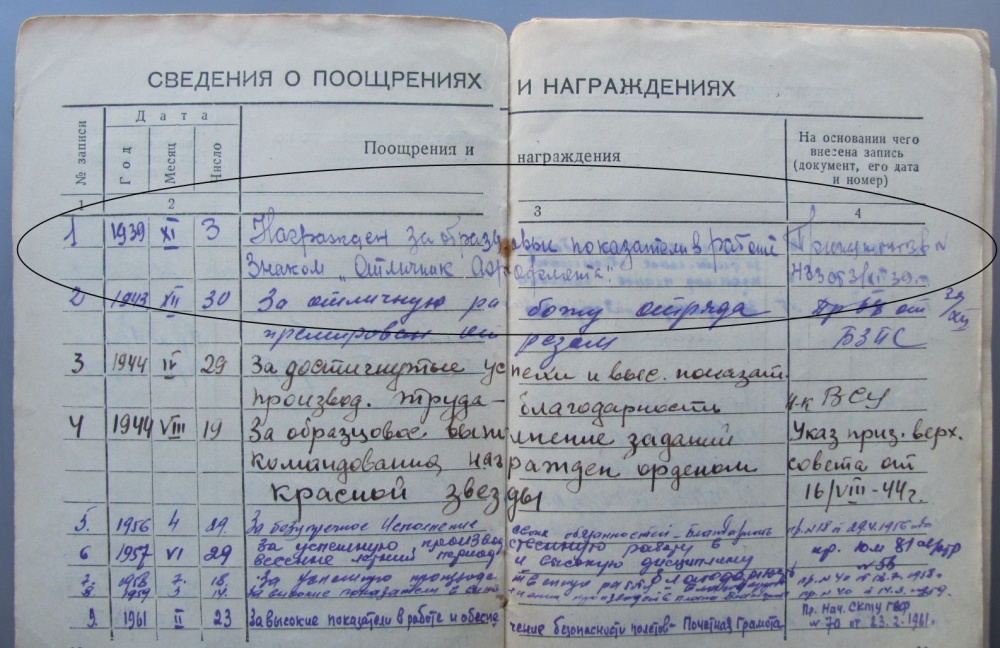 СВЕДЕНИЯ О ПООЩРЕНИЯХ И НАГРАЖДЕНИЯХ
№ записи
Дата
Год
Месяц
Число
Поощрения и награждения
На основании чего
внесена запись
(документ, его дата
и номер)
1 2 3 4
1 1939 XI 3 Награжден за образцовые показатели в работе
Знаком „Отличник Аэрофлота".
2 1943 XII 30 За отличную работу отряда
премирован отрезом БЗПС
3 1944 IV 29 За достигнутые успехи и выс. показат.
производ. труда - благодарность н-к ВСУ
4 1944 VIII 19 За образцовое выполнение заданий Указ през. верх.
командования награжден орденом совета от
красной звезды 16/VIII-44г.
5. 1956 4 29. За безупречное исполнение своих обязанностей - благодарность
6 1957 VI 29 За успешную производственную работу в
весенне летний период и высокую дисциплину
7. 1958 7. 18. За успешную
8. 1959 3 14. За высокие показатели в
9. 1961 II 23 За высокие показатели в работе и обеспечение безопасности полетов - Почетная Грамота Пр. Нач. СКТУ ГВФ
№ 70 от 23.2.1961г.